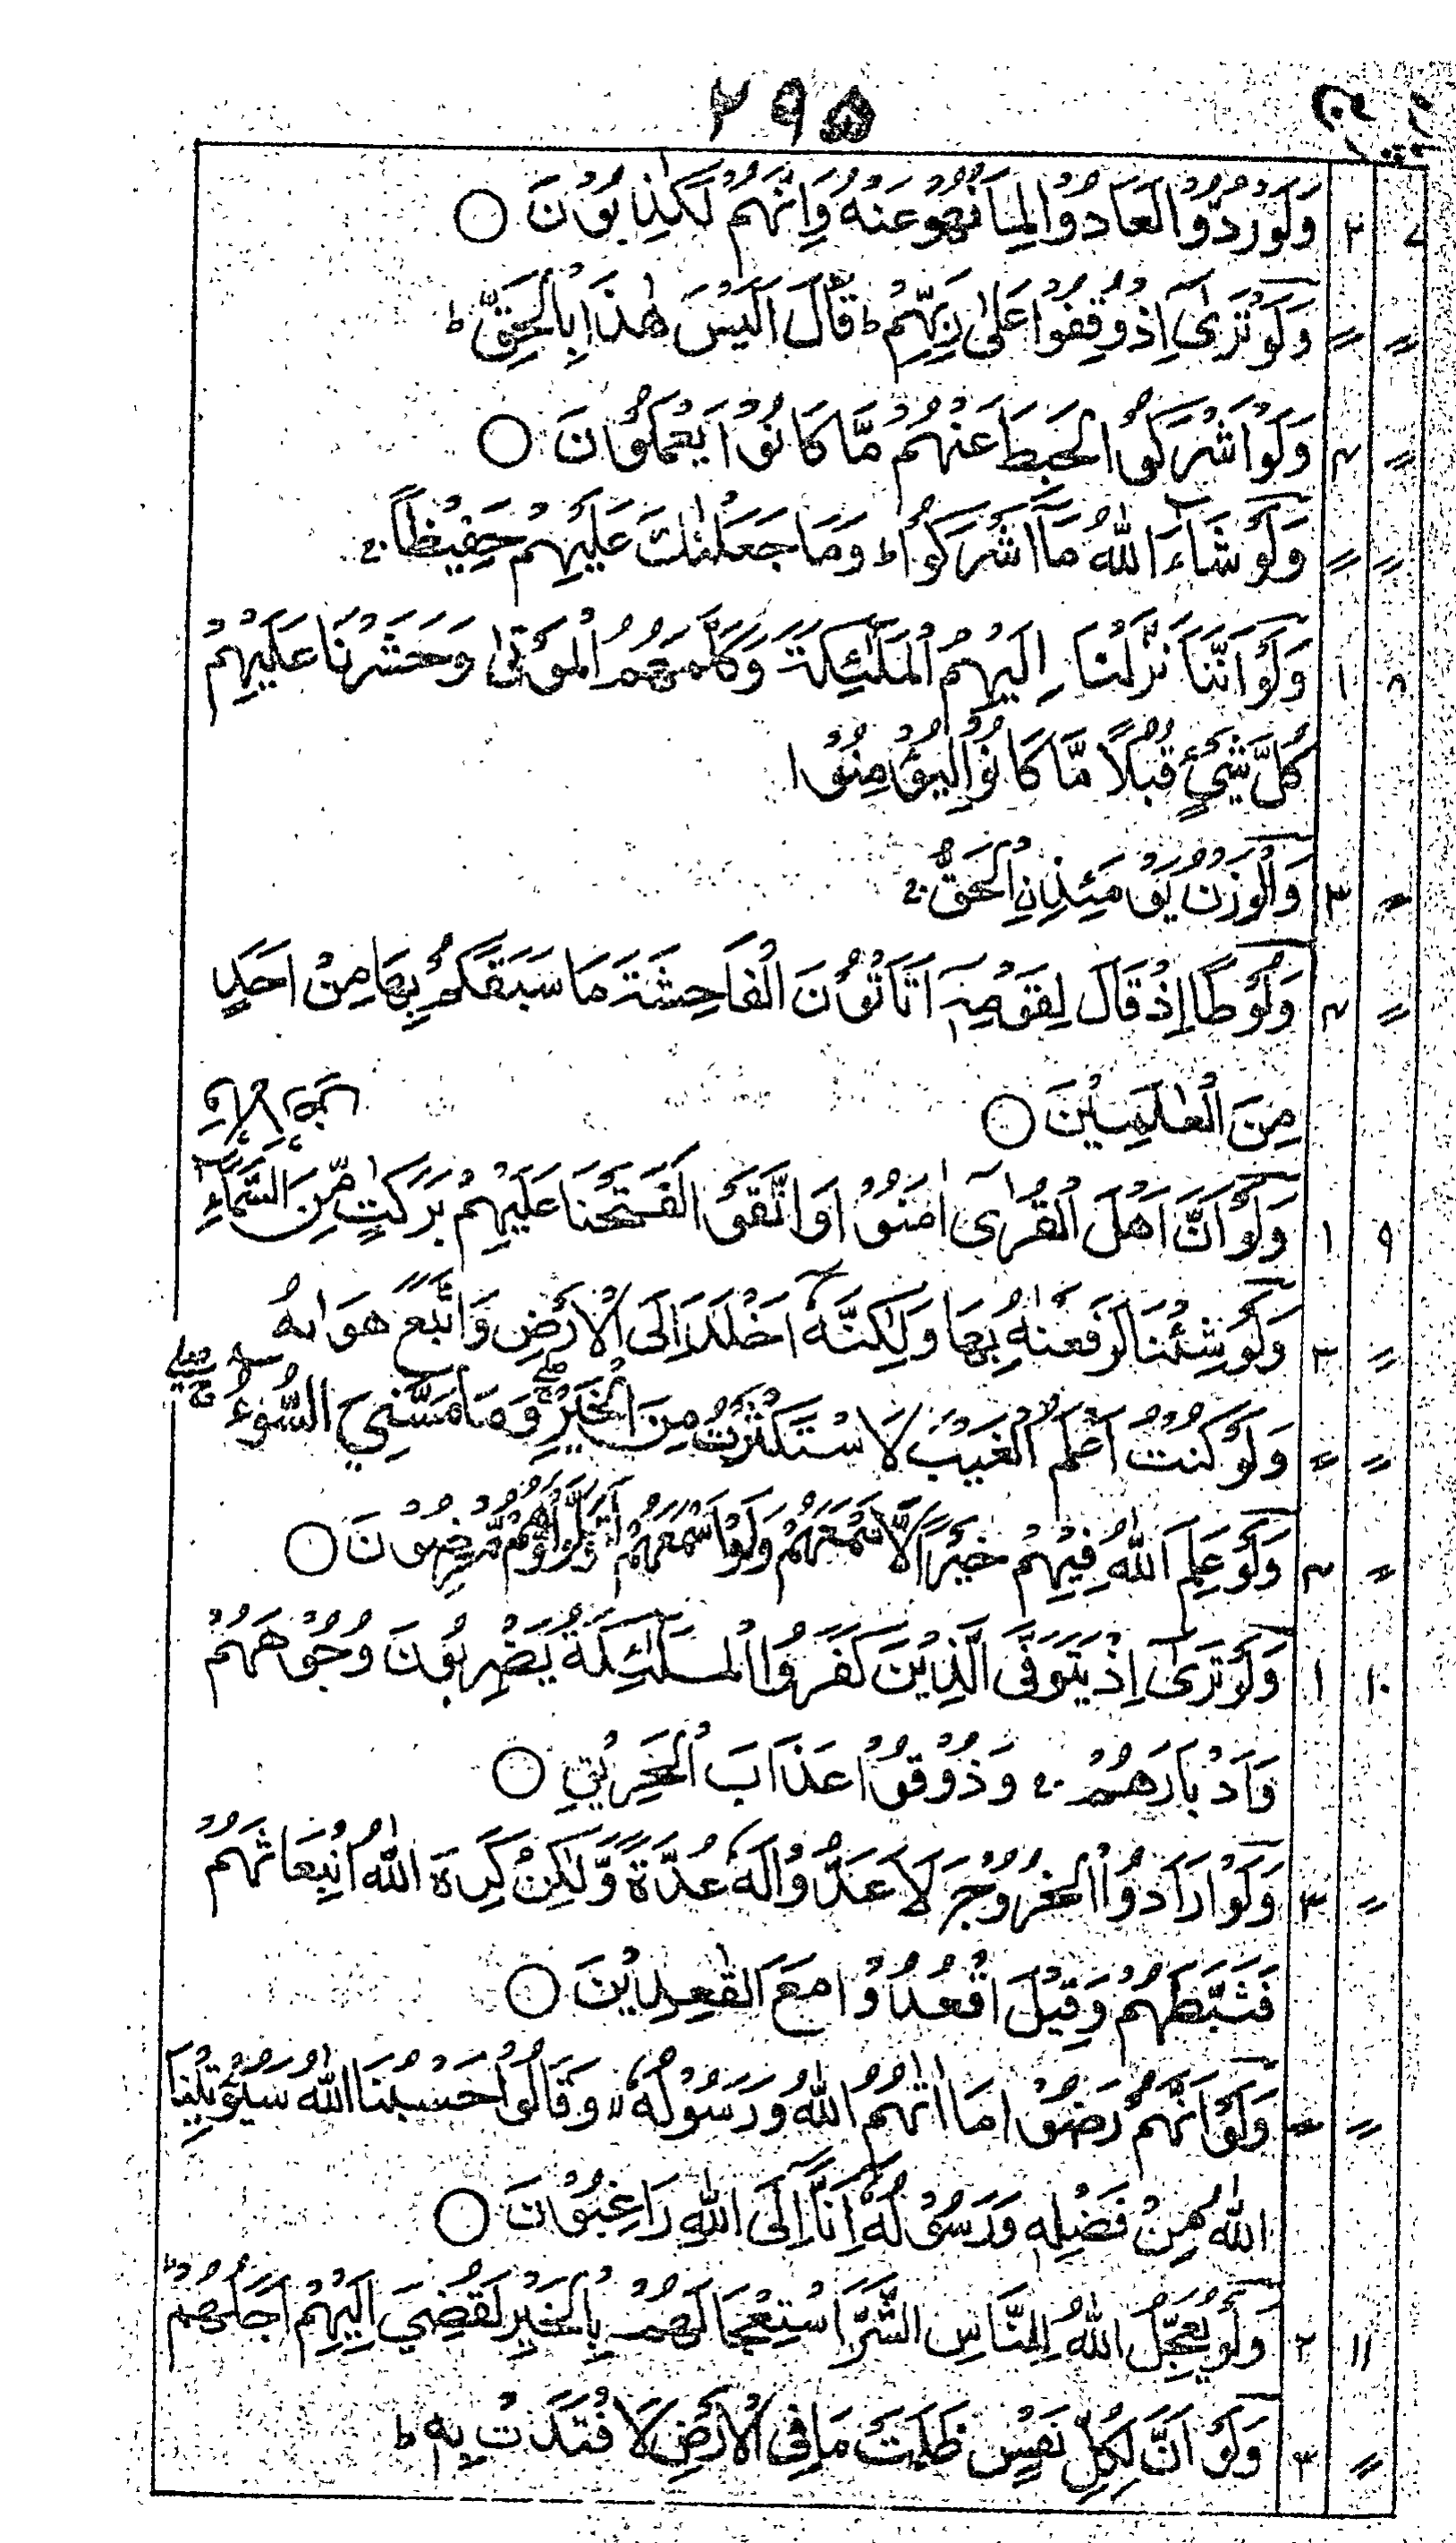 ۲۹۵
۷ ۲ وَلَوْ رُدُّوْا لَعَادُوْا لِمَا نُهُوْا عَنْهُ وَاِنَّهُمْ لَكٰذِبُوْنَ ○
〃 〃 وَلَوْ تَرٰٓى اِذْ وُقِفُوْا عَلٰى رَبِّهِمْ ط قَالَ اَلَيْسَ هٰذَا بِالْحَقِّ ط
〃 ۴ وَلَوْ اَشْرَكُوْا لَحَبِطَ عَنْهُمْ مَّا كَانُوْا يَعْمَلُوْنَ ○
〃 〃 وَلَوْ شَآءَ اللّٰهُ مَآ اَشْرَكُوْا ط وَمَا جَعَلْنٰكَ عَلَيْهِمْ حَفِيْظًا ج
۸ ۱ وَلَوْ اَنَّنَا نَزَّلْنَآ اِلَيْهِمُ الْمَلٰٓئِكَةَ وَكَلَّمَهُمُ الْمَوْتٰى وَحَشَرْنَا عَلَيْهِمْ
كُلَّ شَيْءٍ قُبُلًا مَّا كَانُوْا لِيُؤْمِنُوْا
〃 ۳ وَالْوَزْنُ يَوْمَئِذِنِ الْحَقُّ ج
〃 ۴ وَلُوْطًا اِذْ قَالَ لِقَوْمِهٖٓ اَتَاْتُوْنَ الْفَاحِشَةَ مَا سَبَقَكُمْ بِهَا مِنْ اَحَدٍ
مِنَ الْعٰلَمِيْنَ ○
۹ ۱ وَلَوْ اَنَّ اَهْلَ الْقُرٰٓى اٰمَنُوْا وَاتَّقَوْا لَفَتَحْنَا عَلَيْهِمْ بَرَكٰتٍ مِّنَ السَّمَآءِ
〃 ۳ وَلَوْ شِئْنَا لَرَفَعْنٰهُ بِهَا وَلٰكِنَّهٗٓ اَخْلَدَ اِلَى الْاَرْضِ وَاتَّبَعَ هَوٰىهُ
〃 〃 وَلَوْ كُنْتُ اَعْلَمُ الْغَيْبَ لَاسْتَكْثَرْتُ مِنَ الْخَيْرِ وَمَا مَسَّنِيَ السُّوْٓءُ
〃 ۴ وَلَوْ عَلِمَ اللّٰهُ فِيْهِمْ خَيْرًا لَّاَسْمَعَهُمْ وَلَوْ اَسْمَعَهُمْ لَتَوَلَّوْا وَّهُمْ مُّعْرِضُوْنَ ○
۱۰ ۱ وَلَوْ تَرٰٓى اِذْ يَتَوَفَّى الَّذِيْنَ كَفَرُوا الْمَلٰٓئِكَةُ يَضْرِبُوْنَ وُجُوْهَهُمْ
وَاَدْبَارَهُمْ ج وَذُوْقُوْا عَذَابَ الْحَرِيْقِ ○
〃 ۳ وَلَوْ اَرَادُوا الْخُرُوْجَ لَاَعَدُّوْا لَهٗ عُدَّةً وَّلٰكِنْ كَرِهَ اللّٰهُ انْبِعَاثَهُمْ
فَثَبَّطَهُمْ وَقِيْلَ اقْعُدُوْا مَعَ الْقٰعِدِيْنَ ○
〃 〃 وَلَوْ اَنَّهُمْ رَضُوْا مَا اٰتٰهُمُ اللّٰهُ وَرَسُوْلُهٗ وَقَالُوْا حَسْبُنَا اللّٰهُ سَيُؤْتِيْنَا
اللّٰهُ مِنْ فَضْلِهٖ وَرَسُوْلُهٗٓ اِنَّآ اِلَى اللّٰهِ رَاغِبُوْنَ ○
۱۱ ۲ وَلَوْ يُعَجِّلُ اللّٰهُ لِلنَّاسِ الشَّرَّ اسْتِعْجَالَهُمْ بِالْخَيْرِ لَقُضِيَ اِلَيْهِمْ اَجَلُهُمْ ط
〃 ۳ وَلَوْ اَنَّ لِكُلِّ نَفْسٍ ظَلَمَتْ مَا فِي الْاَرْضِ لَافْتَدَتْ بِهٖ ط